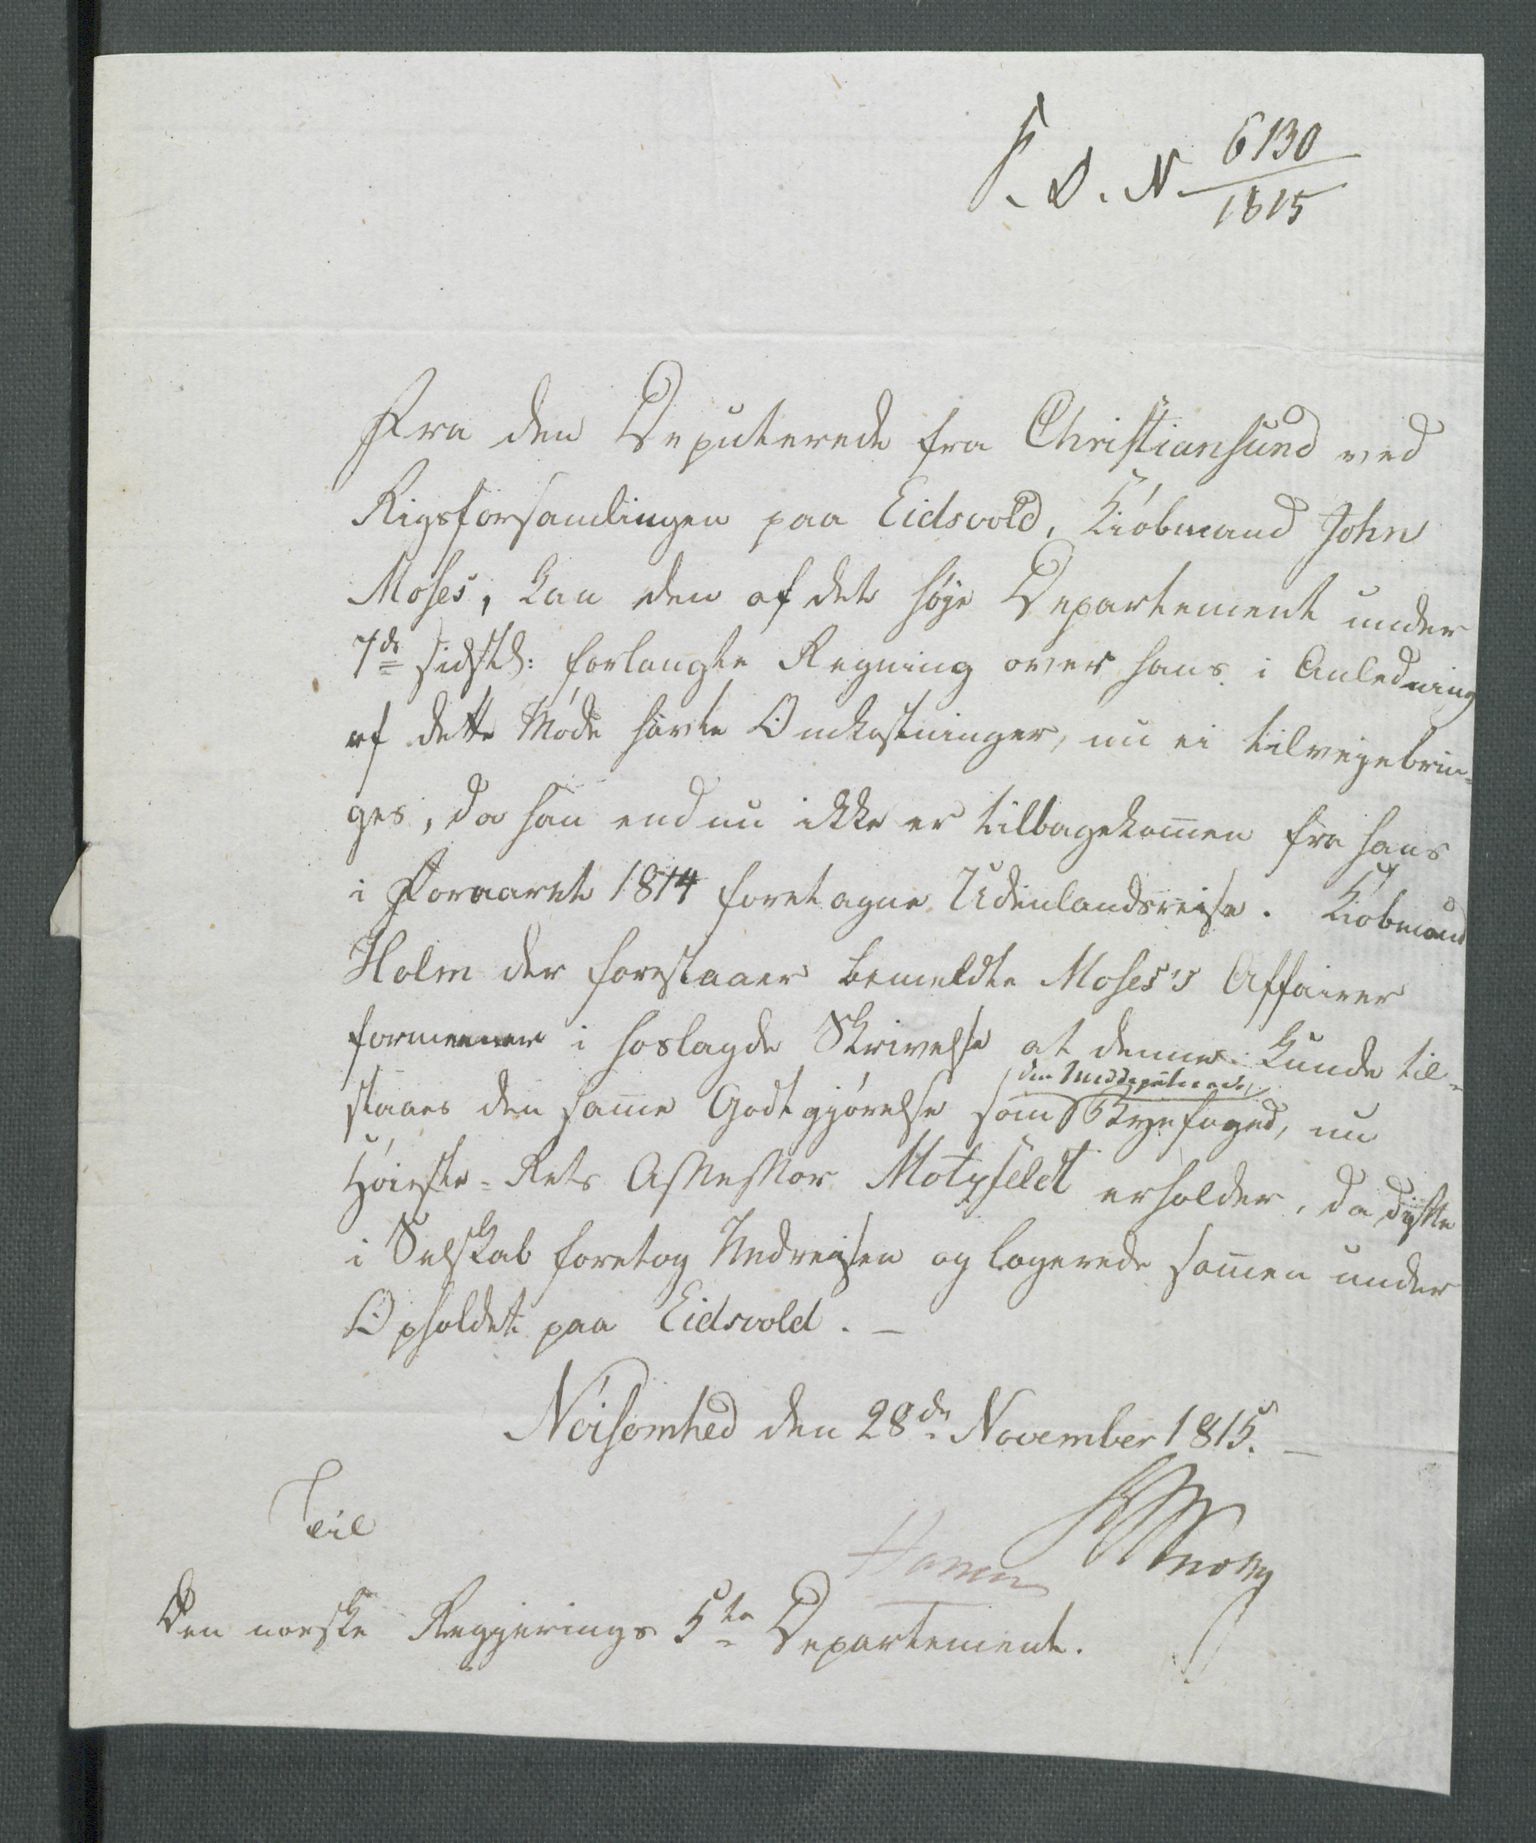 F. D. N 6130
1815
Fra den Deputerede fra Christiansund ved
Rigsforsamlingen paa Eidsvold, Kiøbmand John
Moses, kan den af det høje Departement under
7de sidstl: forlangte Regning over hans i Anledning
af dette Møde havte Omkostninger, nu ei tilvejebrin-
ges, da han endnu ikke er tilbagekommen fra hans
i Foraaret 1814 foretagne Udenlandsreise. Kiøbmand
Holm der forestaaer bemeldte Moses's Affairer
formener i hoslagde Skrivelse at denne kunde til-
staaes den samme Godtgjørelse som
den Meddeputerede,
Byefoged, nu
Høieste-Rets Assessor Motzfeldt erholder, da disse
i Selskab foretog Nedreisen og logerede sammen under
Opholdet paa Eidsvold. —
Nøisomhed den 28de November 1815. —
Til
Den norske Regjerings 5te Departement.